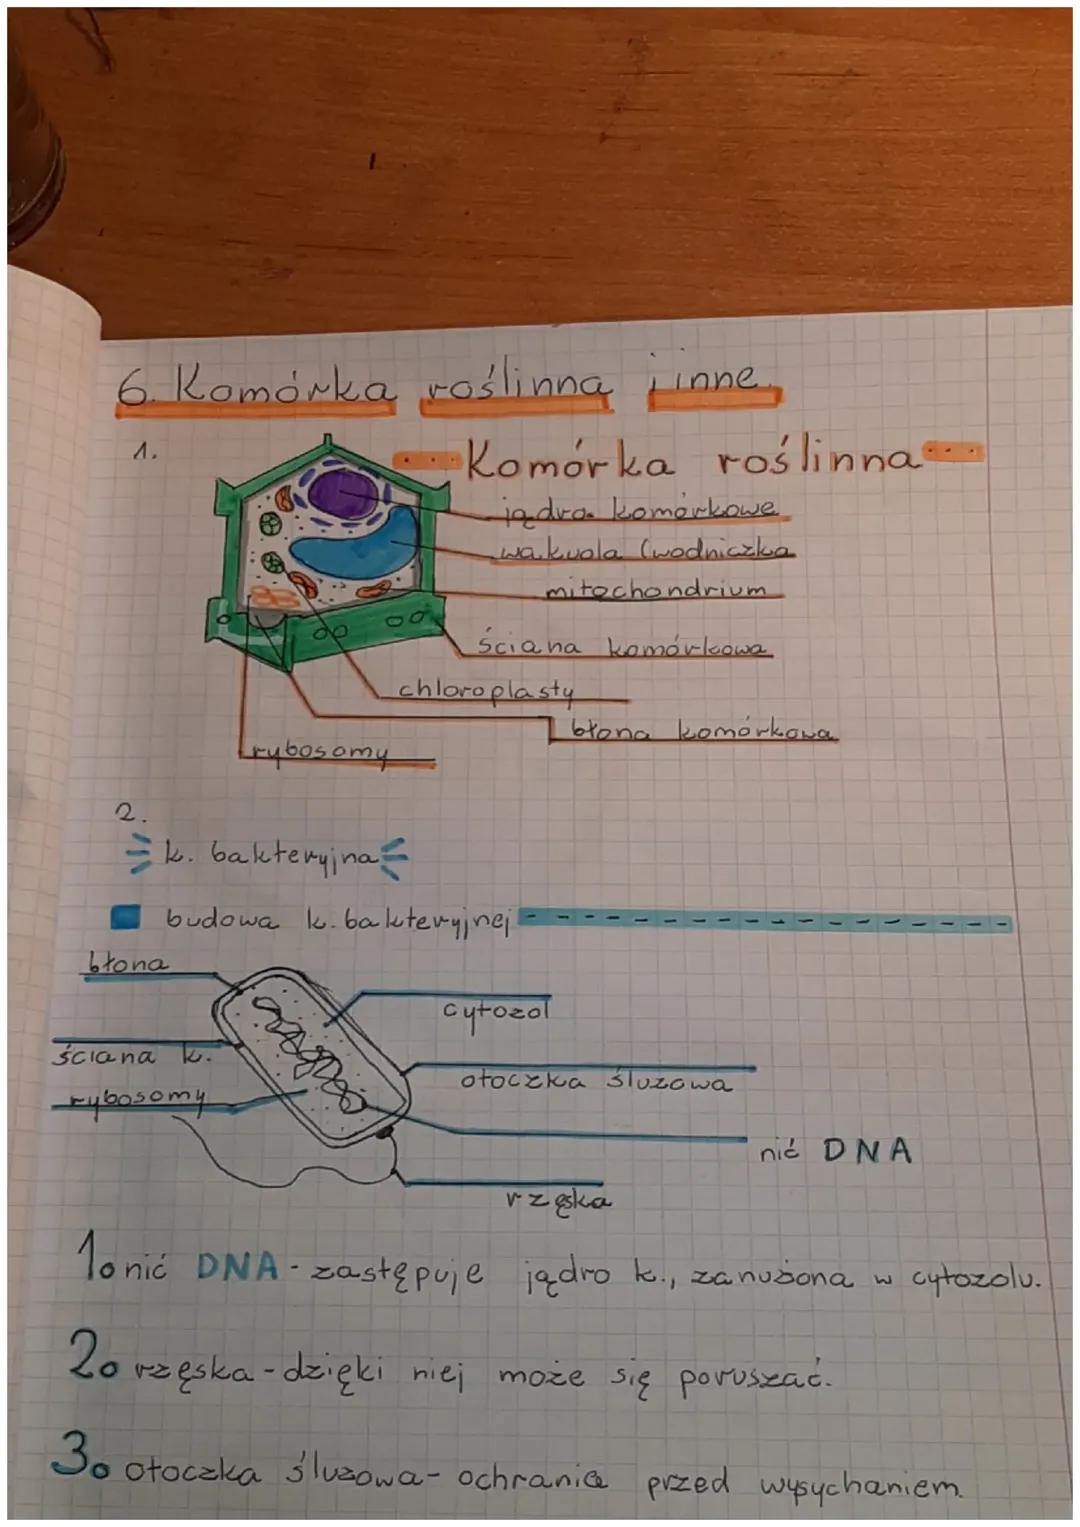 6. Komórka roślinna i inne.
1.
Komórka roślinna
jądro komórkowe
wakuola (wodniczka
mitochondrium
ściana komórkowa
chloroplasty
błona komórkowa
rybosomy
2.
k. bakteryjna
budowa k. bakteryjnej
błona
cytozol
ściana k.
otoczka śluzowa
rybosomy
nić DNA
rzęska
1. nić DNA - zastępuje jądro k., zanużona w cytozolu.
2. rzęska - dzięki niej może się poruszać.
3. otoczka śluzowa - ochrania przed wysychaniem.